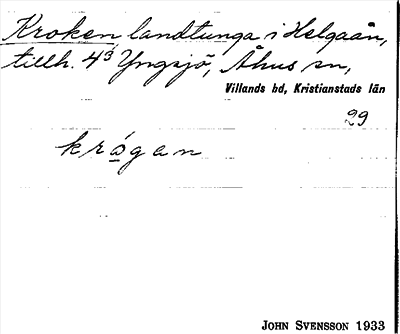 Kroken landtunga i Helgaån,
tillh. 4³ Yngsjö, Åhus sn,
Villands hd, Kristianstads län
29
krågan
JOHN SVENSSON 1933